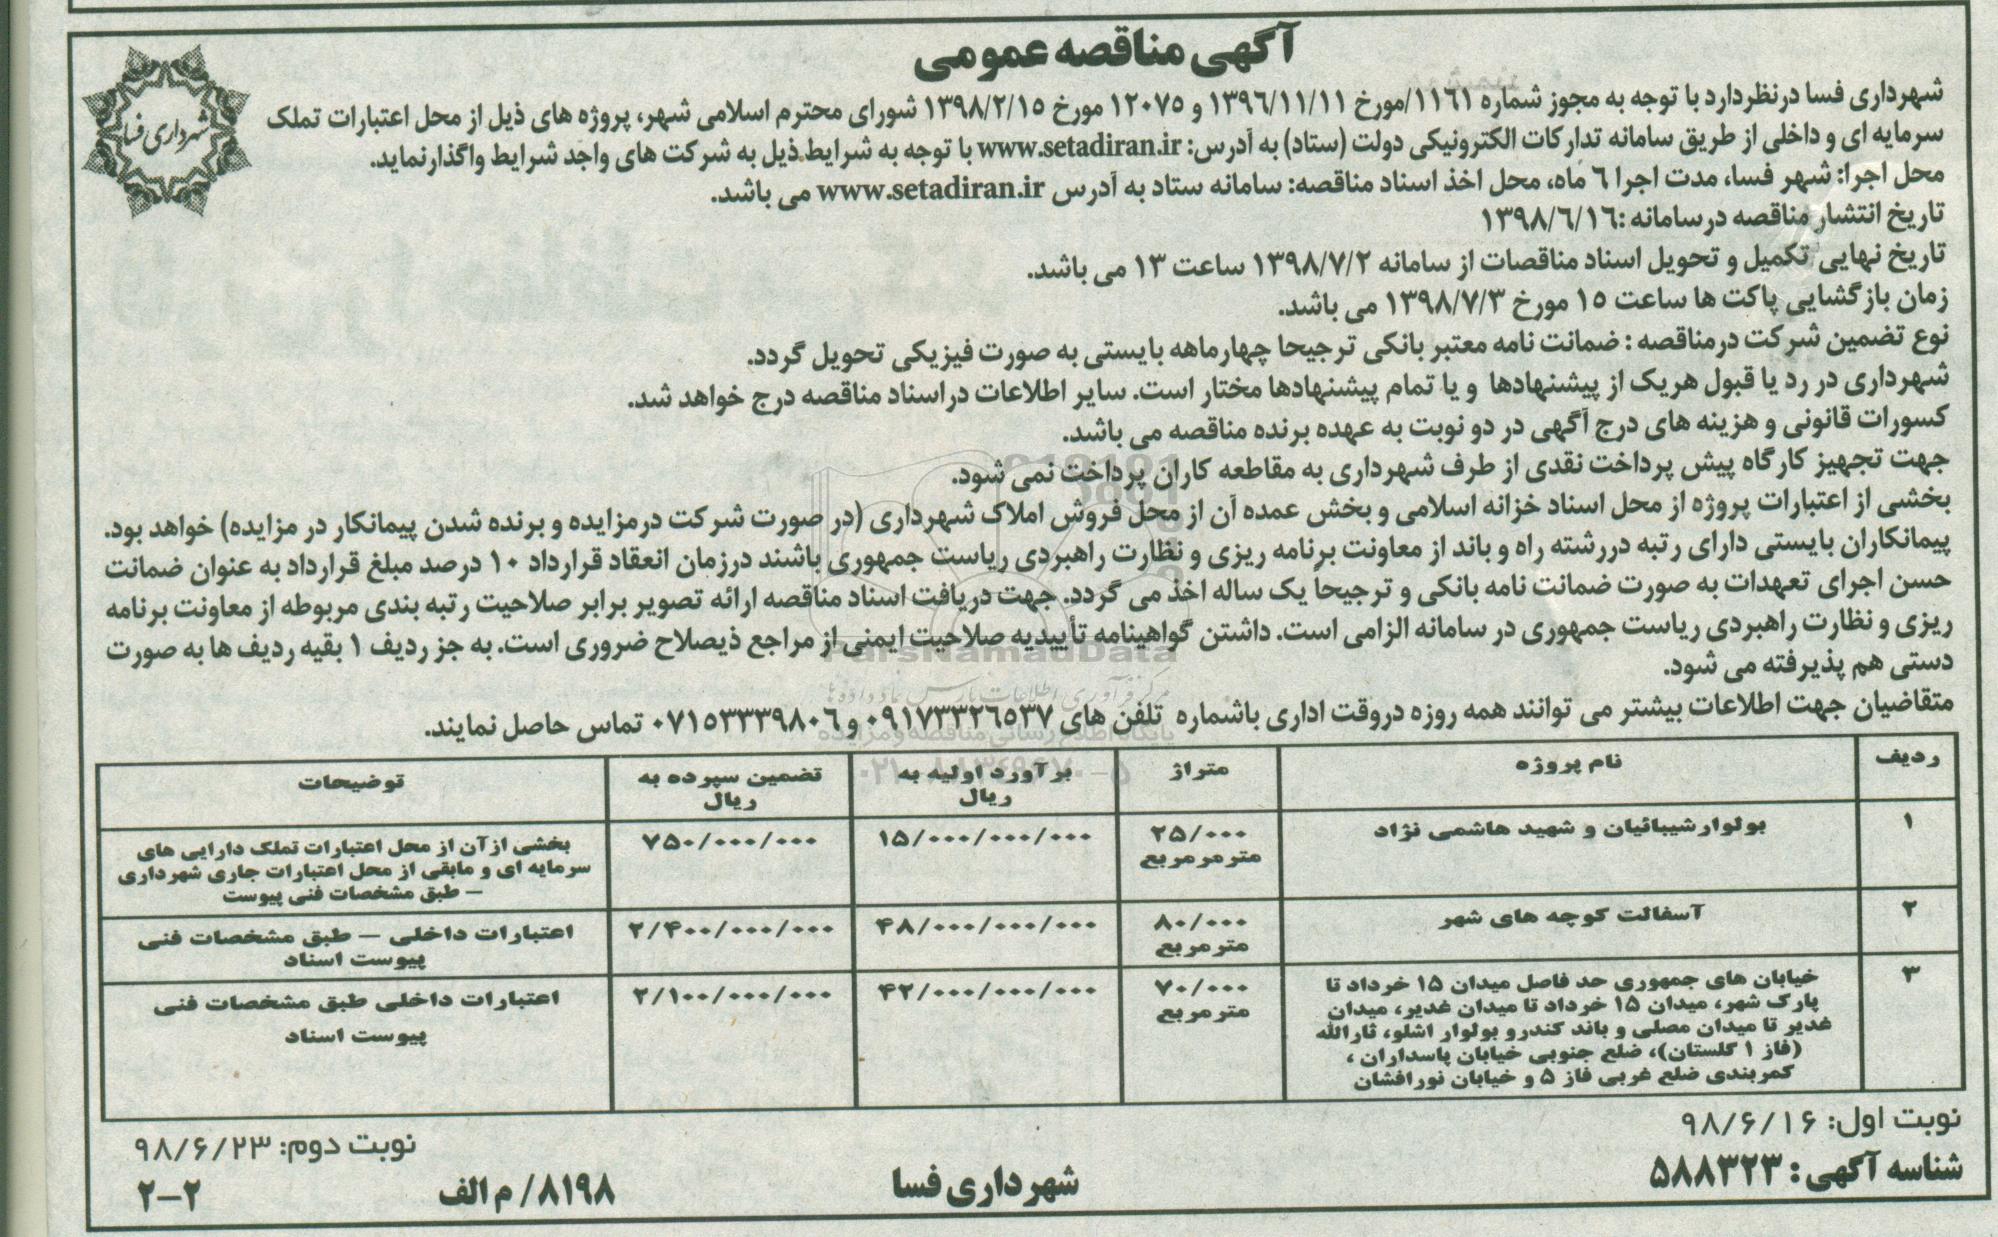 آگهی مناقصه عمومی
شهرداری فسا
شهرداری فسا درنظردارد با توجه به مجوز شماره ۱۱۶۱/مورخ ۱۳۹۶/۱۱/۱۱ و ۱۲۰۷۵ مورخ ۱۳۹۸/۲/۱۵ شورای محترم اسلامی شهر، پروژه های ذیل از محل اعتبارات تملک
سرمایه ای و داخلی از طریق سامانه تدارکات الکترونیکی دولت (ستاد) به آدرس: www.setadiran.ir با توجه به شرایط ذیل به شرکت های واجد شرایط واگذارنماید.
محل اجرا: شهر فسا، مدت اجرا ۶ ماه، محل اخذ اسناد مناقصه: سامانه ستاد به آدرس www.setadiran.ir می باشد.
تاریخ انتشار مناقصه درسامانه :۱۳۹۸/۶/۱۶
تاریخ نهایی تکمیل و تحویل اسناد مناقصات از سامانه ۱۳۹۸/۷/۲ ساعت ۱۳ می باشد.
زمان بازگشایی پاکت ها ساعت ۱۵ مورخ ۱۳۹۸/۷/۳ می باشد.
نوع تضمین شرکت درمناقصه : ضمانت نامه معتبر بانکی ترجیحا چهارماهه بایستی به صورت فیزیکی تحویل گردد.
شهرداری در رد یا قبول هریک از پیشنهادها و یا تمام پیشنهادها مختار است. سایر اطلاعات دراسناد مناقصه درج خواهد شد.
کسورات قانونی و هزینه های درج آگهی در دو نوبت به عهده برنده مناقصه می باشد.
جهت تجهیز کارگاه پیش پرداخت نقدی از طرف شهرداری به مقاطعه کاران پرداخت نمی شود.
بخشی از اعتبارات پروژه از محل اسناد خزانه اسلامی و بخش عمده آن از محل فروش املاک شهرداری (در صورت شرکت درمزایده و برنده شدن پیمانکار در مزایده) خواهد بود.
پیمانکاران بایستی دارای رتبه دررشته راه و باند از معاونت برنامه ریزی و نظارت راهبردی ریاست جمهوری باشند درزمان انعقاد قرارداد ۱۰ درصد مبلغ قرارداد به عنوان ضمانت
حسن اجرای تعهدات به صورت ضمانت نامه بانکی و ترجیحاً یک ساله اخذ می گردد. جهت دریافت اسناد مناقصه ارائه تصویر برابر صلاحیت رتبه بندی مربوطه از معاونت برنامه
ریزی و نظارت راهبردی ریاست جمهوری در سامانه الزامی است. داشتن گواهینامه تأییدیه صلاحیت ایمنی از مراجع ذیصلاح ضروری است. به جز ردیف ۱ بقیه ردیف ها به صورت
دستی هم پذیرفته می شود.
متقاضیان جهت اطلاعات بیشتر می توانند همه روزه دروقت اداری باشماره تلفن های ۰۹۱۷۳۳۲۶۵۳۷ و ۰۷۱۵۳۳۳۹۸۰۶ تماس حاصل نمایند.
ParsNamadData
مرکز فرآوری اطلاعات پارس نماد داده ها
پایگاه اطلاع رسانی مناقصه و مزایده
ردیف نام پروژه متراژ برآورد اولیه به تضمین سپرده به توضیحات
ریال ریال
۱ بولوارشیبانیان و شهید هاشمی نژاد ۲۵/۰۰۰ ۱۵/۰۰۰/۰۰۰/۰۰۰ ۷۵۰/۰۰۰/۰۰۰ بخشی ازآن از محل اعتبارات تملک دارایی های
مترمرمربع سرمایه ای و مابقی از محل اعتبارات جاری شهرداری
– طبق مشخصات فنی پیوست
۲ آسفالت کوچه های شهر ۸۰/۰۰۰ ۴۸/۰۰۰/۰۰۰/۰۰۰ ۲/۴۰۰/۰۰۰/۰۰۰ اعتبارات داخلی – طبق مشخصات فنی
مترمربع پیوست اسناد
۳ خیابان های جمهوری حد فاصل میدان ۱۵ خرداد تا ۷۰/۰۰۰ ۴۲/۰۰۰/۰۰۰/۰۰۰ ۲/۱۰۰/۰۰۰/۰۰۰ اعتبارات داخلی طبق مشخصات فنی
پارک شهر، میدان ۱۵ خرداد تا میدان غدیر، میدان مترمربع پیوست اسناد
غدیر تا میدان مصلی و باند کندرو بولوار اشلو، ثارالله
(فاز ۱ گلستان)، ضلع جنوبی خیابان پاسداران ،
کمربندی ضلع غربی فاز ۵ و خیابان نورافشان
نوبت اول: ۹۸/۶/۱۶
نوبت دوم: ۹۸/۶/۲۳
شناسه آگهی : ۵۸۸۳۲۳
شهرداری فسا
۸۱۹۸/ م الف
۲–۲